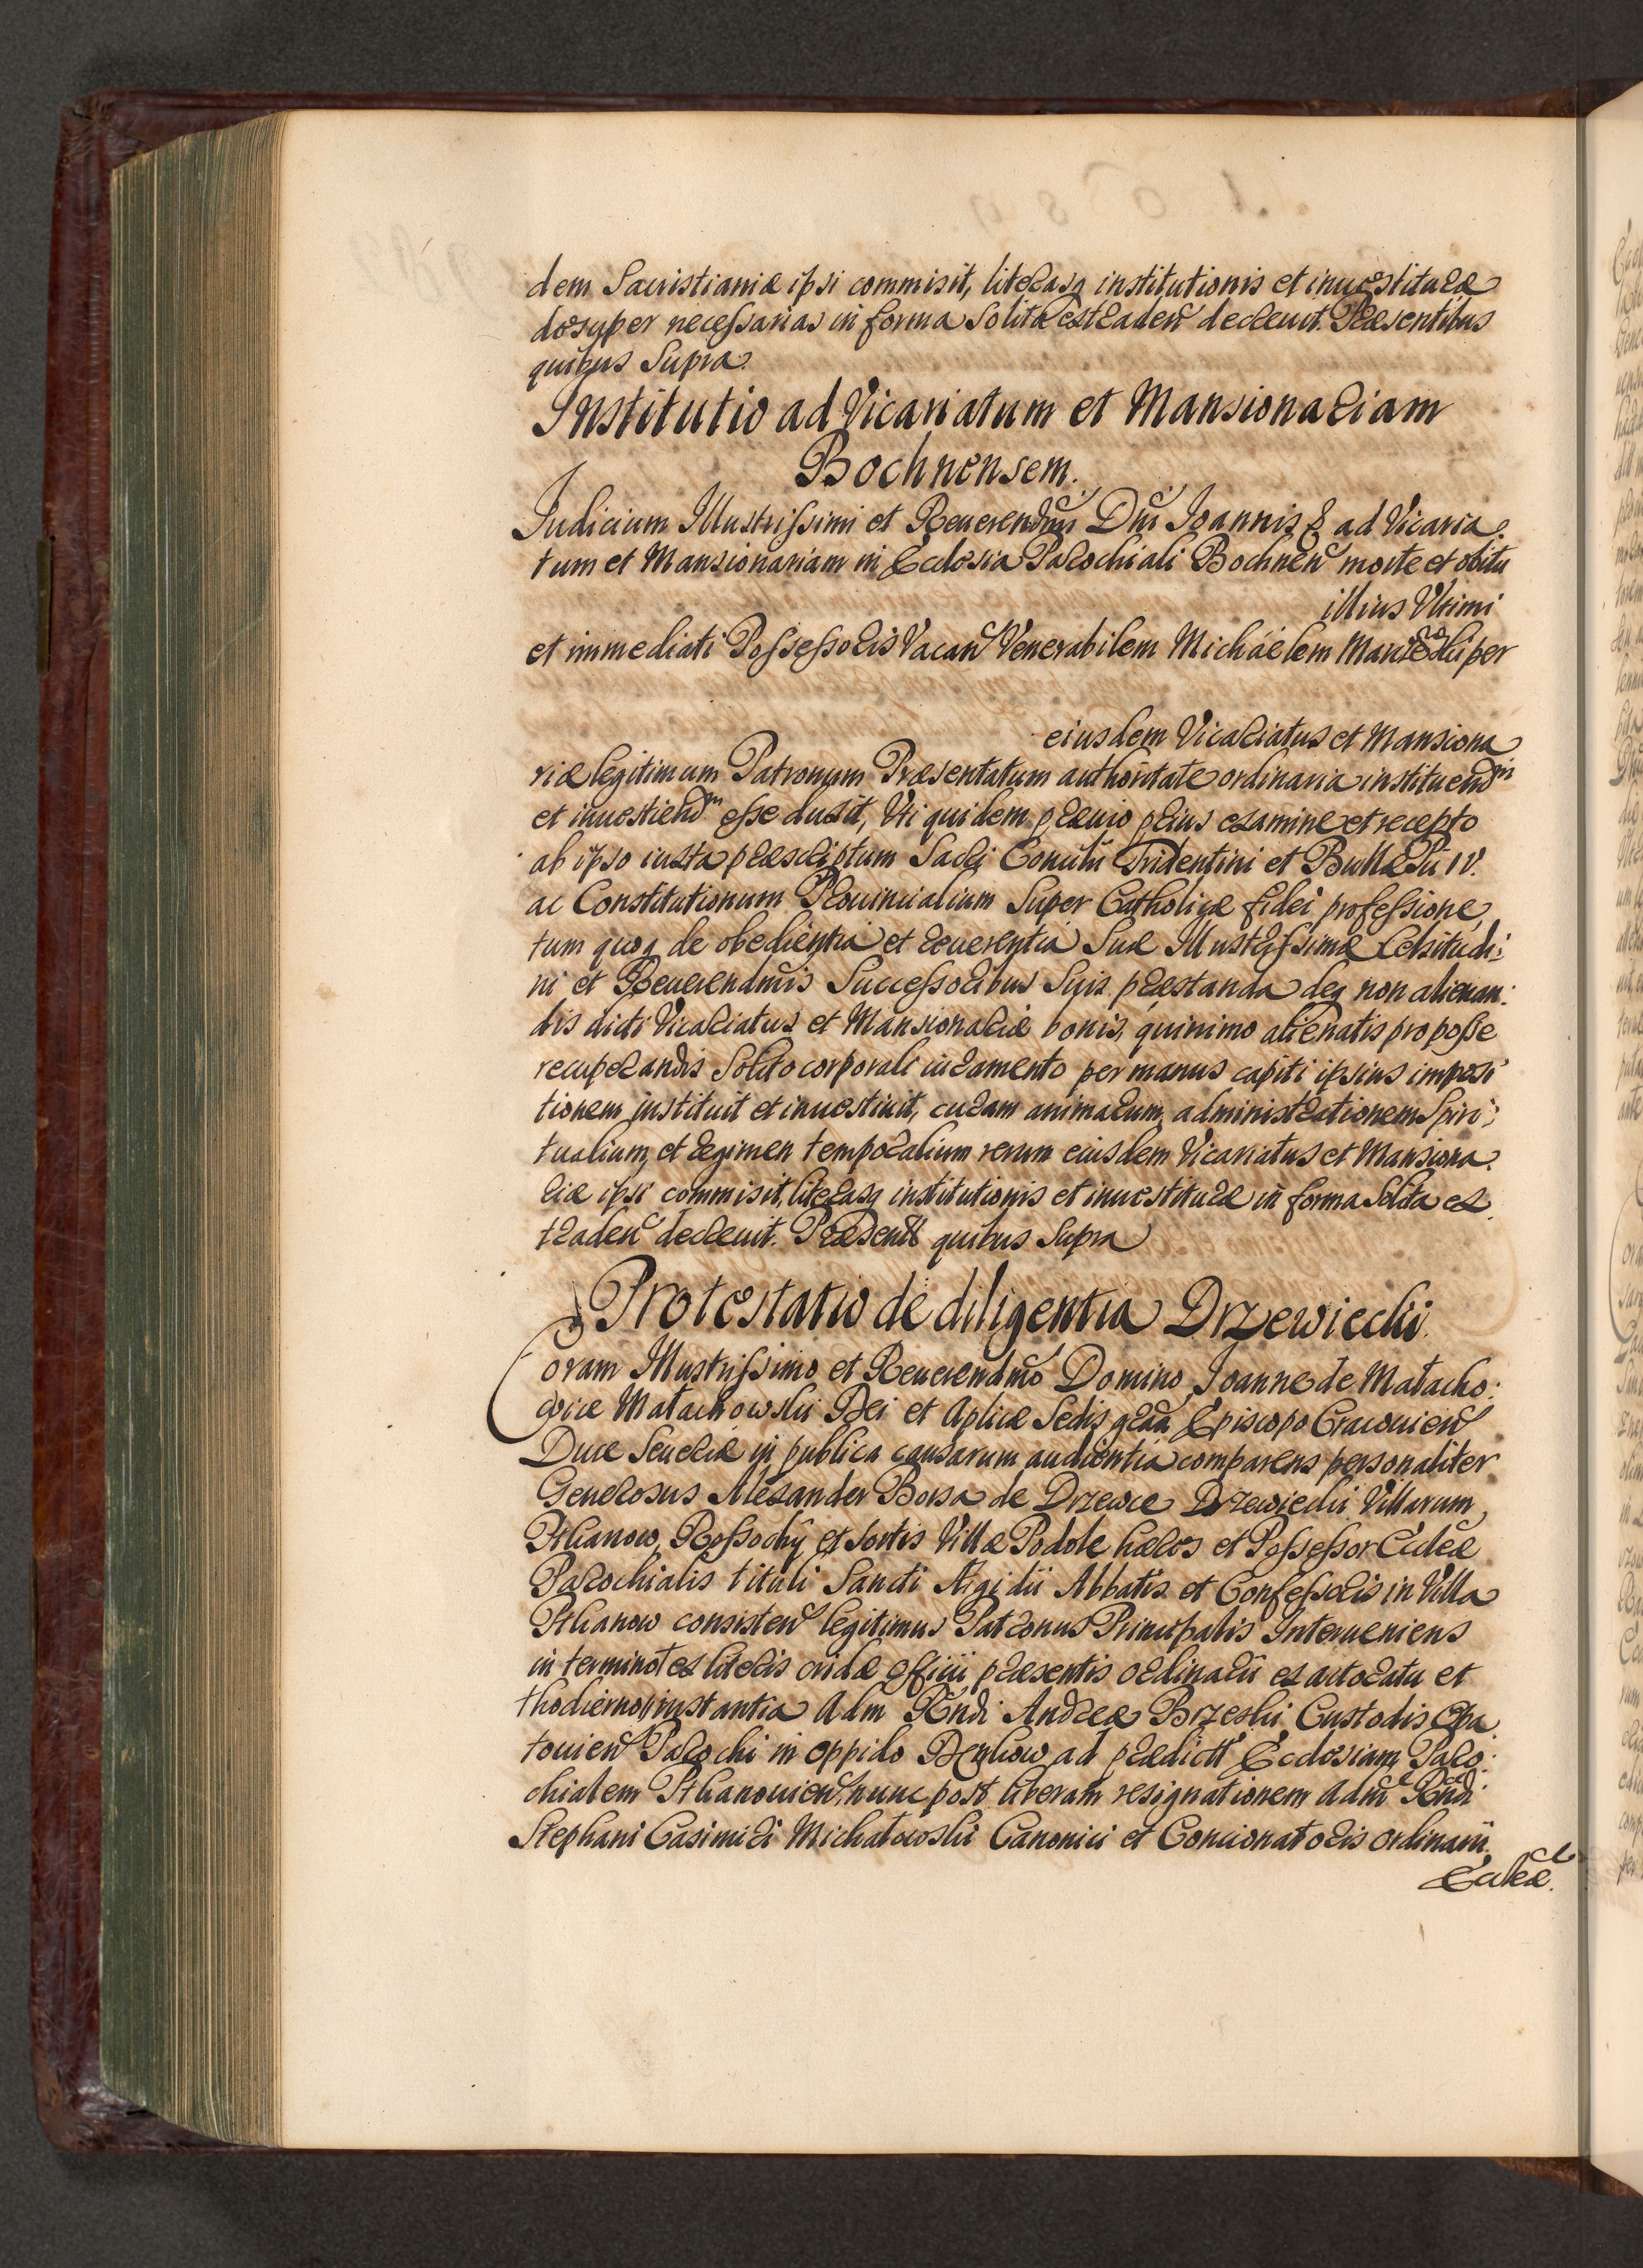 dem Sacristianiæ ipsi commisit, literasq institutionis et inuestituræ
desuper necessarias in forma solita extraden̄ decreuit. Præsentibus
quibus Supra.
Institutio ad Vicariatum et Mansionariam
Bochnensem.
Iudicium Illustrissimi et Reuerendm̄i Dn̄i Ioannis & ad Vicaria:
tum et Mansionariam in Ecclesia Parochiali Bochnen̄ morte et obitu
illius Vltimi
et immediati Possessoris Vacan̄ Venerabilem Michaelem per
eiusdem Vicariatus et Mansiona
riæ legitimum Patronum Præsentatum authoritate ordinaria instituendm
et inuestiendm esse duxit, Vti quidem præuio prius examine et recepto
ab ipso iuxta præscriptum Sacri Concilii Tridentini et Bullæ Pii IV.
ac Constitutionum Prouincialium Super Catholicæ fidei professione,
tum quoq de obedientia et reuerentia Suæ Illustrissimæ Celsitudi:
ni et Reuerendm̄is Successoribus Suis præstanda deq non alienan:
dis dicti Vicariatus et Mansionariæ bonis, quinimo alienatis pro posse
recuperandis Solito corporali iuramento per manus capiti ipsius imposi
tionem instituit et inuestiuit, curam animarum, administrationem Spiri:
tualium, et regimen temporalium rerum eiusdem Vicariatus et Mansiona:
riæ ipsi commisit, literasq institutionis et inuestituræ in forma Solita ex
traden̄ decreuit. Præsentt quibus Supra
Protestatio de diligentia Drzewiecki.
Coram Illustrissimo et Reuerendm̄o Domino Ioanne de Małacho:
wice Małachowski Dei et Aplicæ Sedis gr̄a Episcopo Cracouien̄
Duce Seueriæ in publica causarum audientia comparens personaliter
Generosus Alexander Borsa de Drzewce Drzewiecki Villarum
Ptkanow, Rossochy et sortis Villæ Podole hæres et Possessor Eccleæ
Parochialis tituli Sancti Ægidii Abbatis et Confessoris in Villa
Ptkanow consisten̄ legitimus Patronus Principalis Interueniens
in termino ex literis cridæ officii præsentis ordinarii exactoratu et
hodierno instantia Adm Rn̄di Andreæ Brzeski Custodis Opa
touien̄ Parochi in oppido Denkow ad prædictt Ecclesiam Paro:
chialem Ptkanouien̄, nunc post liberam resignationem Adm̄ Rn̄di
Stephani Casimiri Michałowski Canonici et Concionatoris Ordinarii
Eccleæ